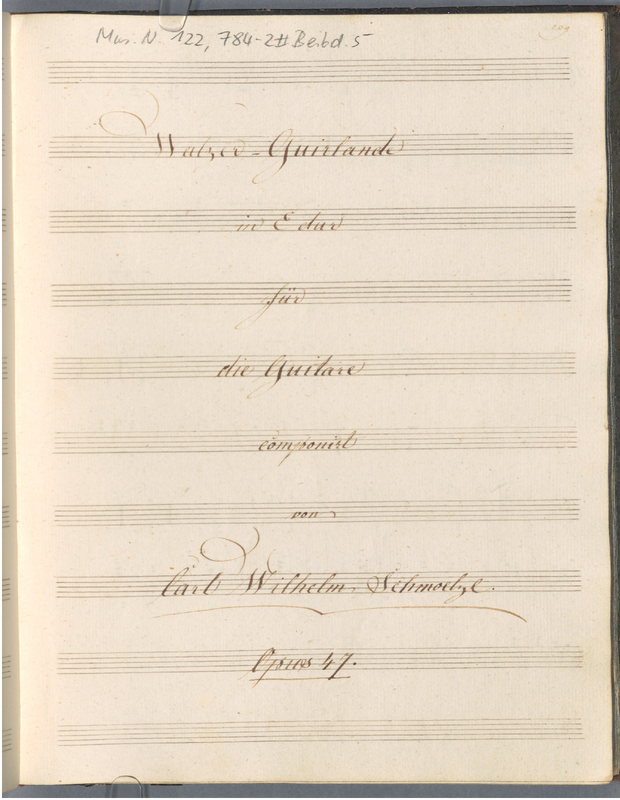 Mus. N. 122, 784-2#Beibd. 5
Walzer-Guirlande
in E dur
für
die Guitare
componirt
von
Carl Wilhelm Schmoelze.
Opus 47.